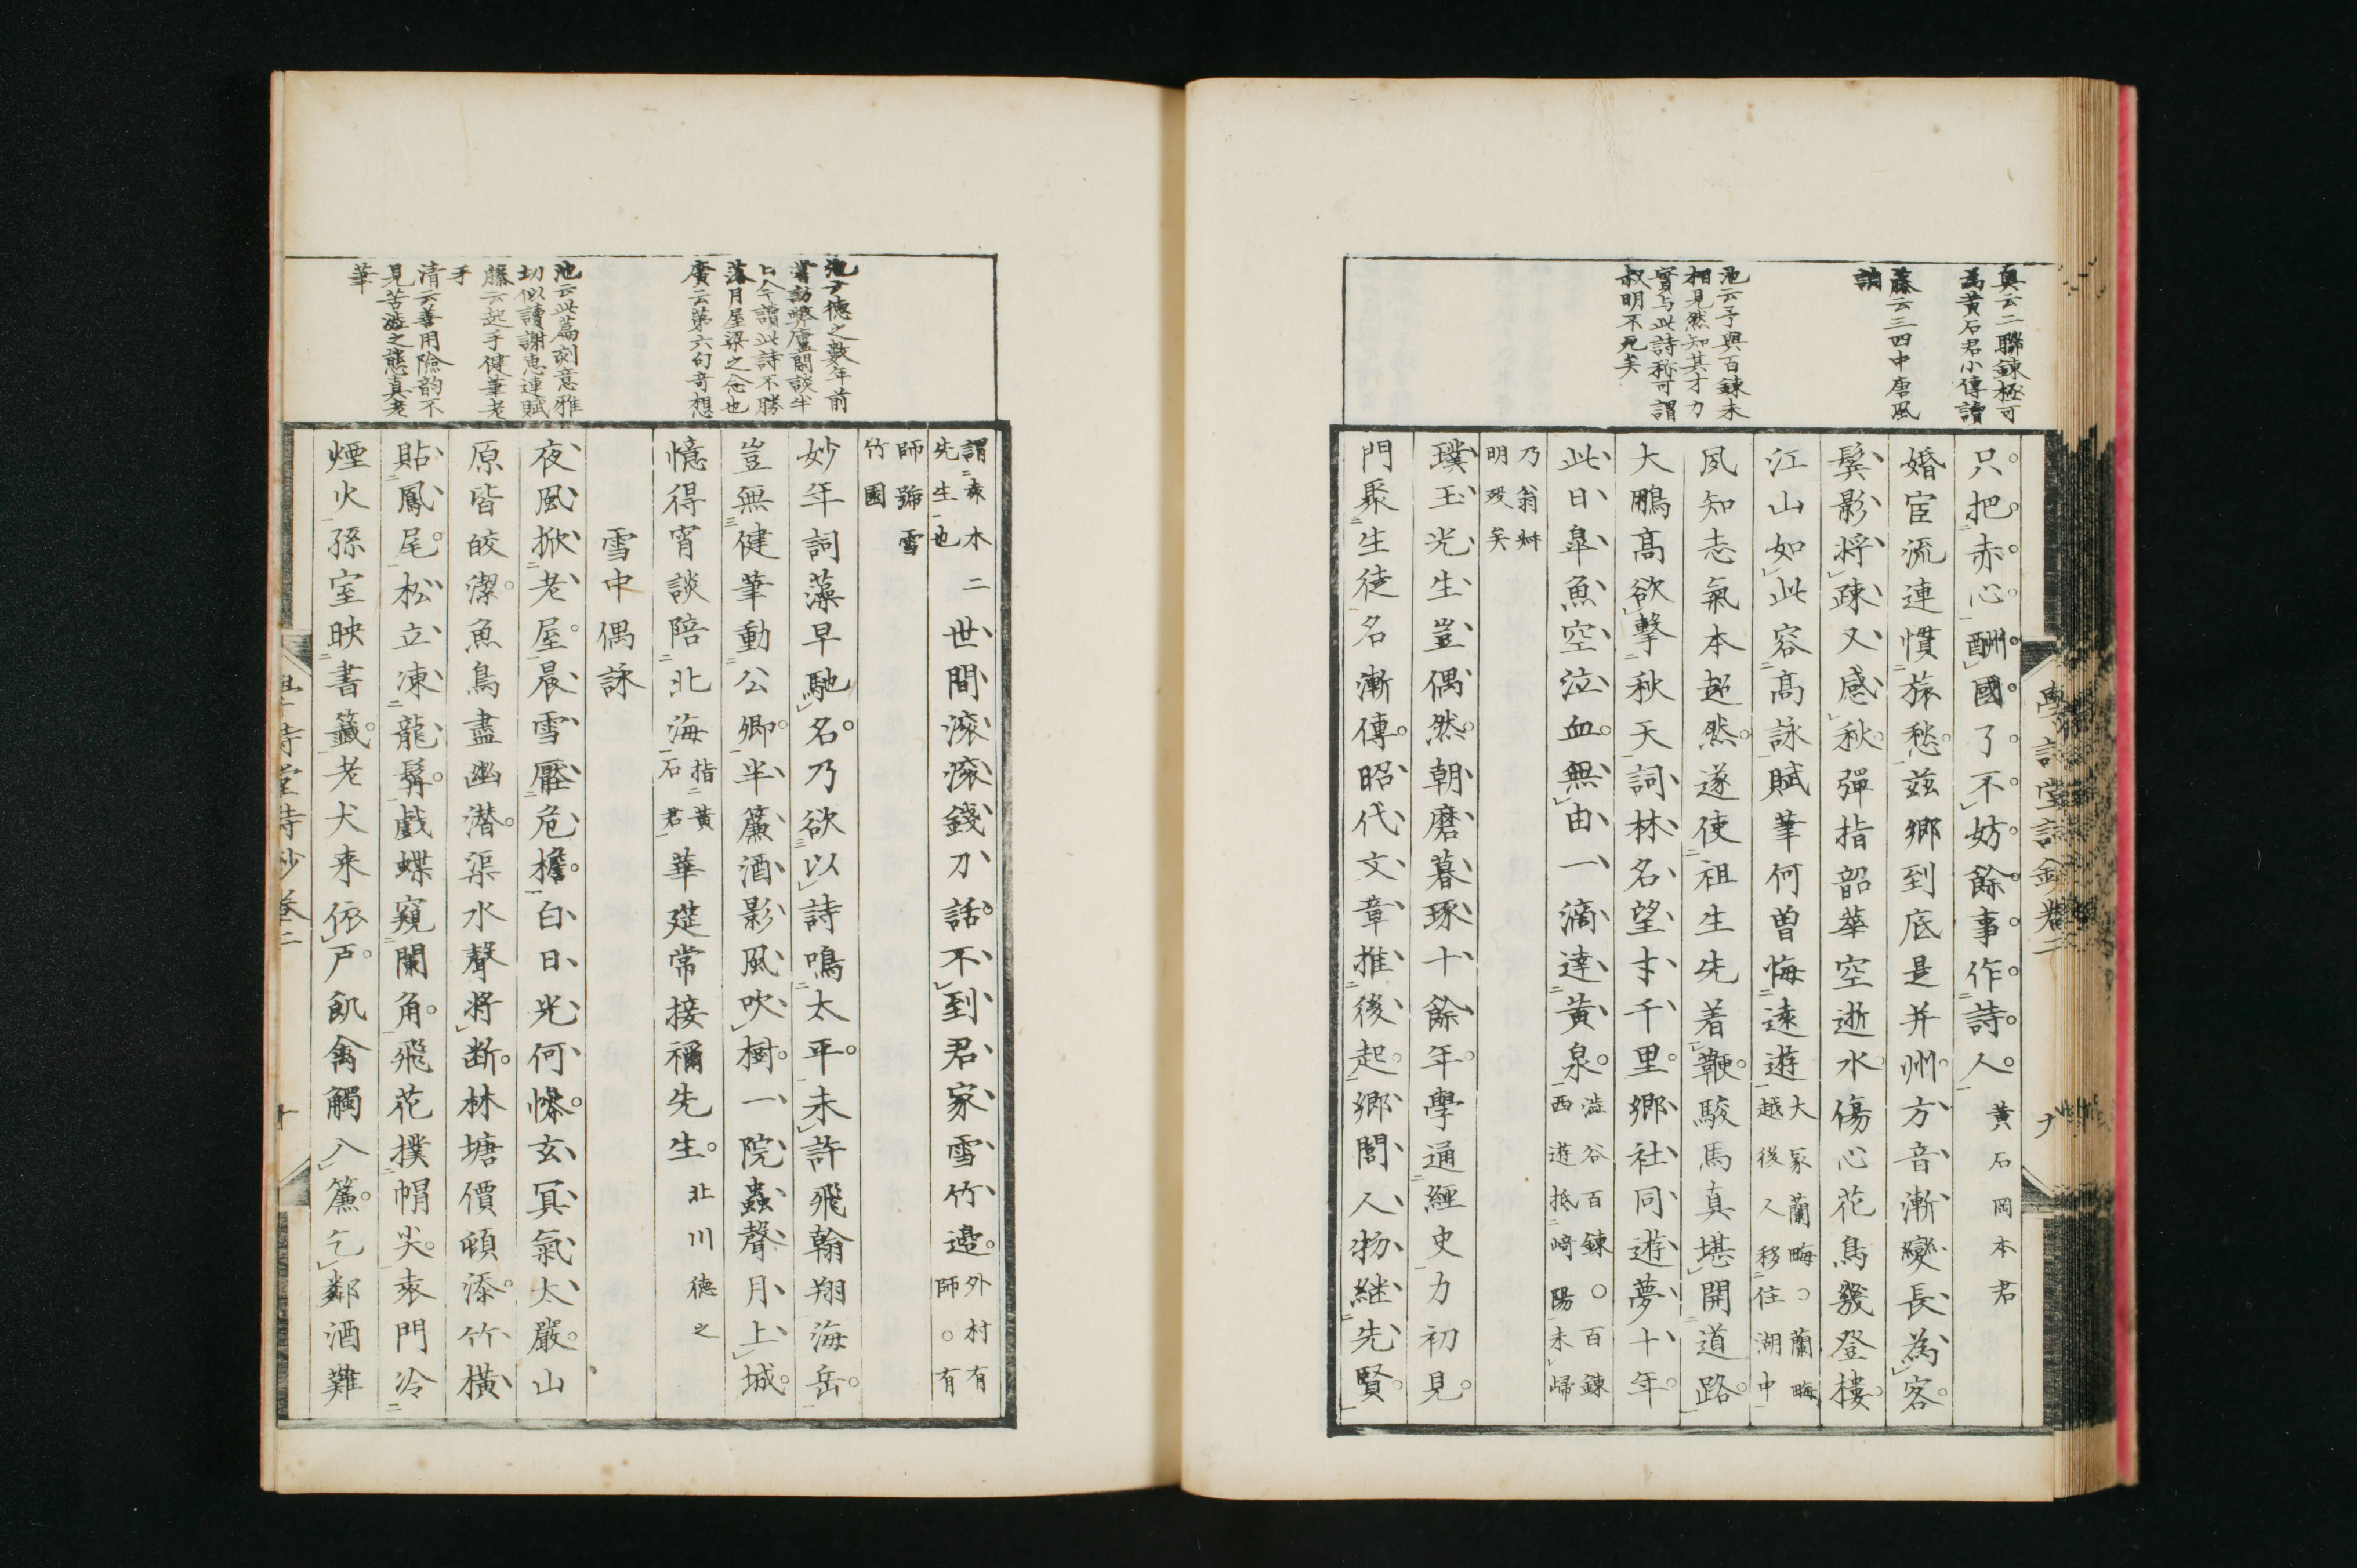 真云二聯錬極可
為黄石君小傳讀
藤云三四中唐風
調
池云予與百錬未
相見然知其才力
實与此詩称可謂
叔明不死矣
只把赤心酬國了不妨餘事作詩人 黄石岡本君
婚宦流連慣旅愁茲郷到底是并州方音漸變長為客
鬓影将疎又感秋彈指韶華空逝水傷心花鳥幾登樓
江山如此容髙詠賦筆何曽悔遠遊 大冢蘭畮。蘭畮
越後人移住湖中
夙知志氣本超然遂使祖生先着鞭駿馬真堪開道路
大鵬髙欲擊秋天詞林名望才千里郷社同遊夢十年
此日皐魚空泣血無由一滴達黄泉 澁谷百錬。百錬
西遊抵﨑陽未歸
乃翁舛
明歿矣
璞玉光生豈偶然朝磨暮琢十餘年學通經史力初見
門聚生徒名漸傳昭代文章推後起郷閭人物継先賢
學詩堂詩鈔卷二
九
池云德之數年前
嘗訪弊廬閑談半
日今讀此詩不勝
落月屋梁之念也
廣云第六句奇想
池云此篇刻意雅
切似讀謝惠連賦
藤云起手健筆老
手
清云善用險韵不
見苦澁之態真老
筆
謂東木
先生也
二世間滚滚錢刀話不到君家雪竹邉 外村有
師。有
師號雪
竹園
妙年詞藻早馳名乃欲以詩鳴太平未許飛翰翔海岳
豈無健筆動公卿半簾酒影風吹樹一院蟲聲月上城
憶得宵談陪北海 指黄
石君
華筵常接禰先生 北川德之
雪中偶詠
夜風掀老屋晨雪壓危檐白日光何惨玄冥氣太嚴山
原皆皎潔魚鳥盡幽潜渠水聲将断林塘價頓添竹橫
貼鳳尾松立凍龍髯戲蝶窺闌角飛花撲帽尖袁門冷
煙火孫室映書籤老犬来依戸飢禽觸入簾乞鄰酒難
學詩堂詩鈔卷二
十